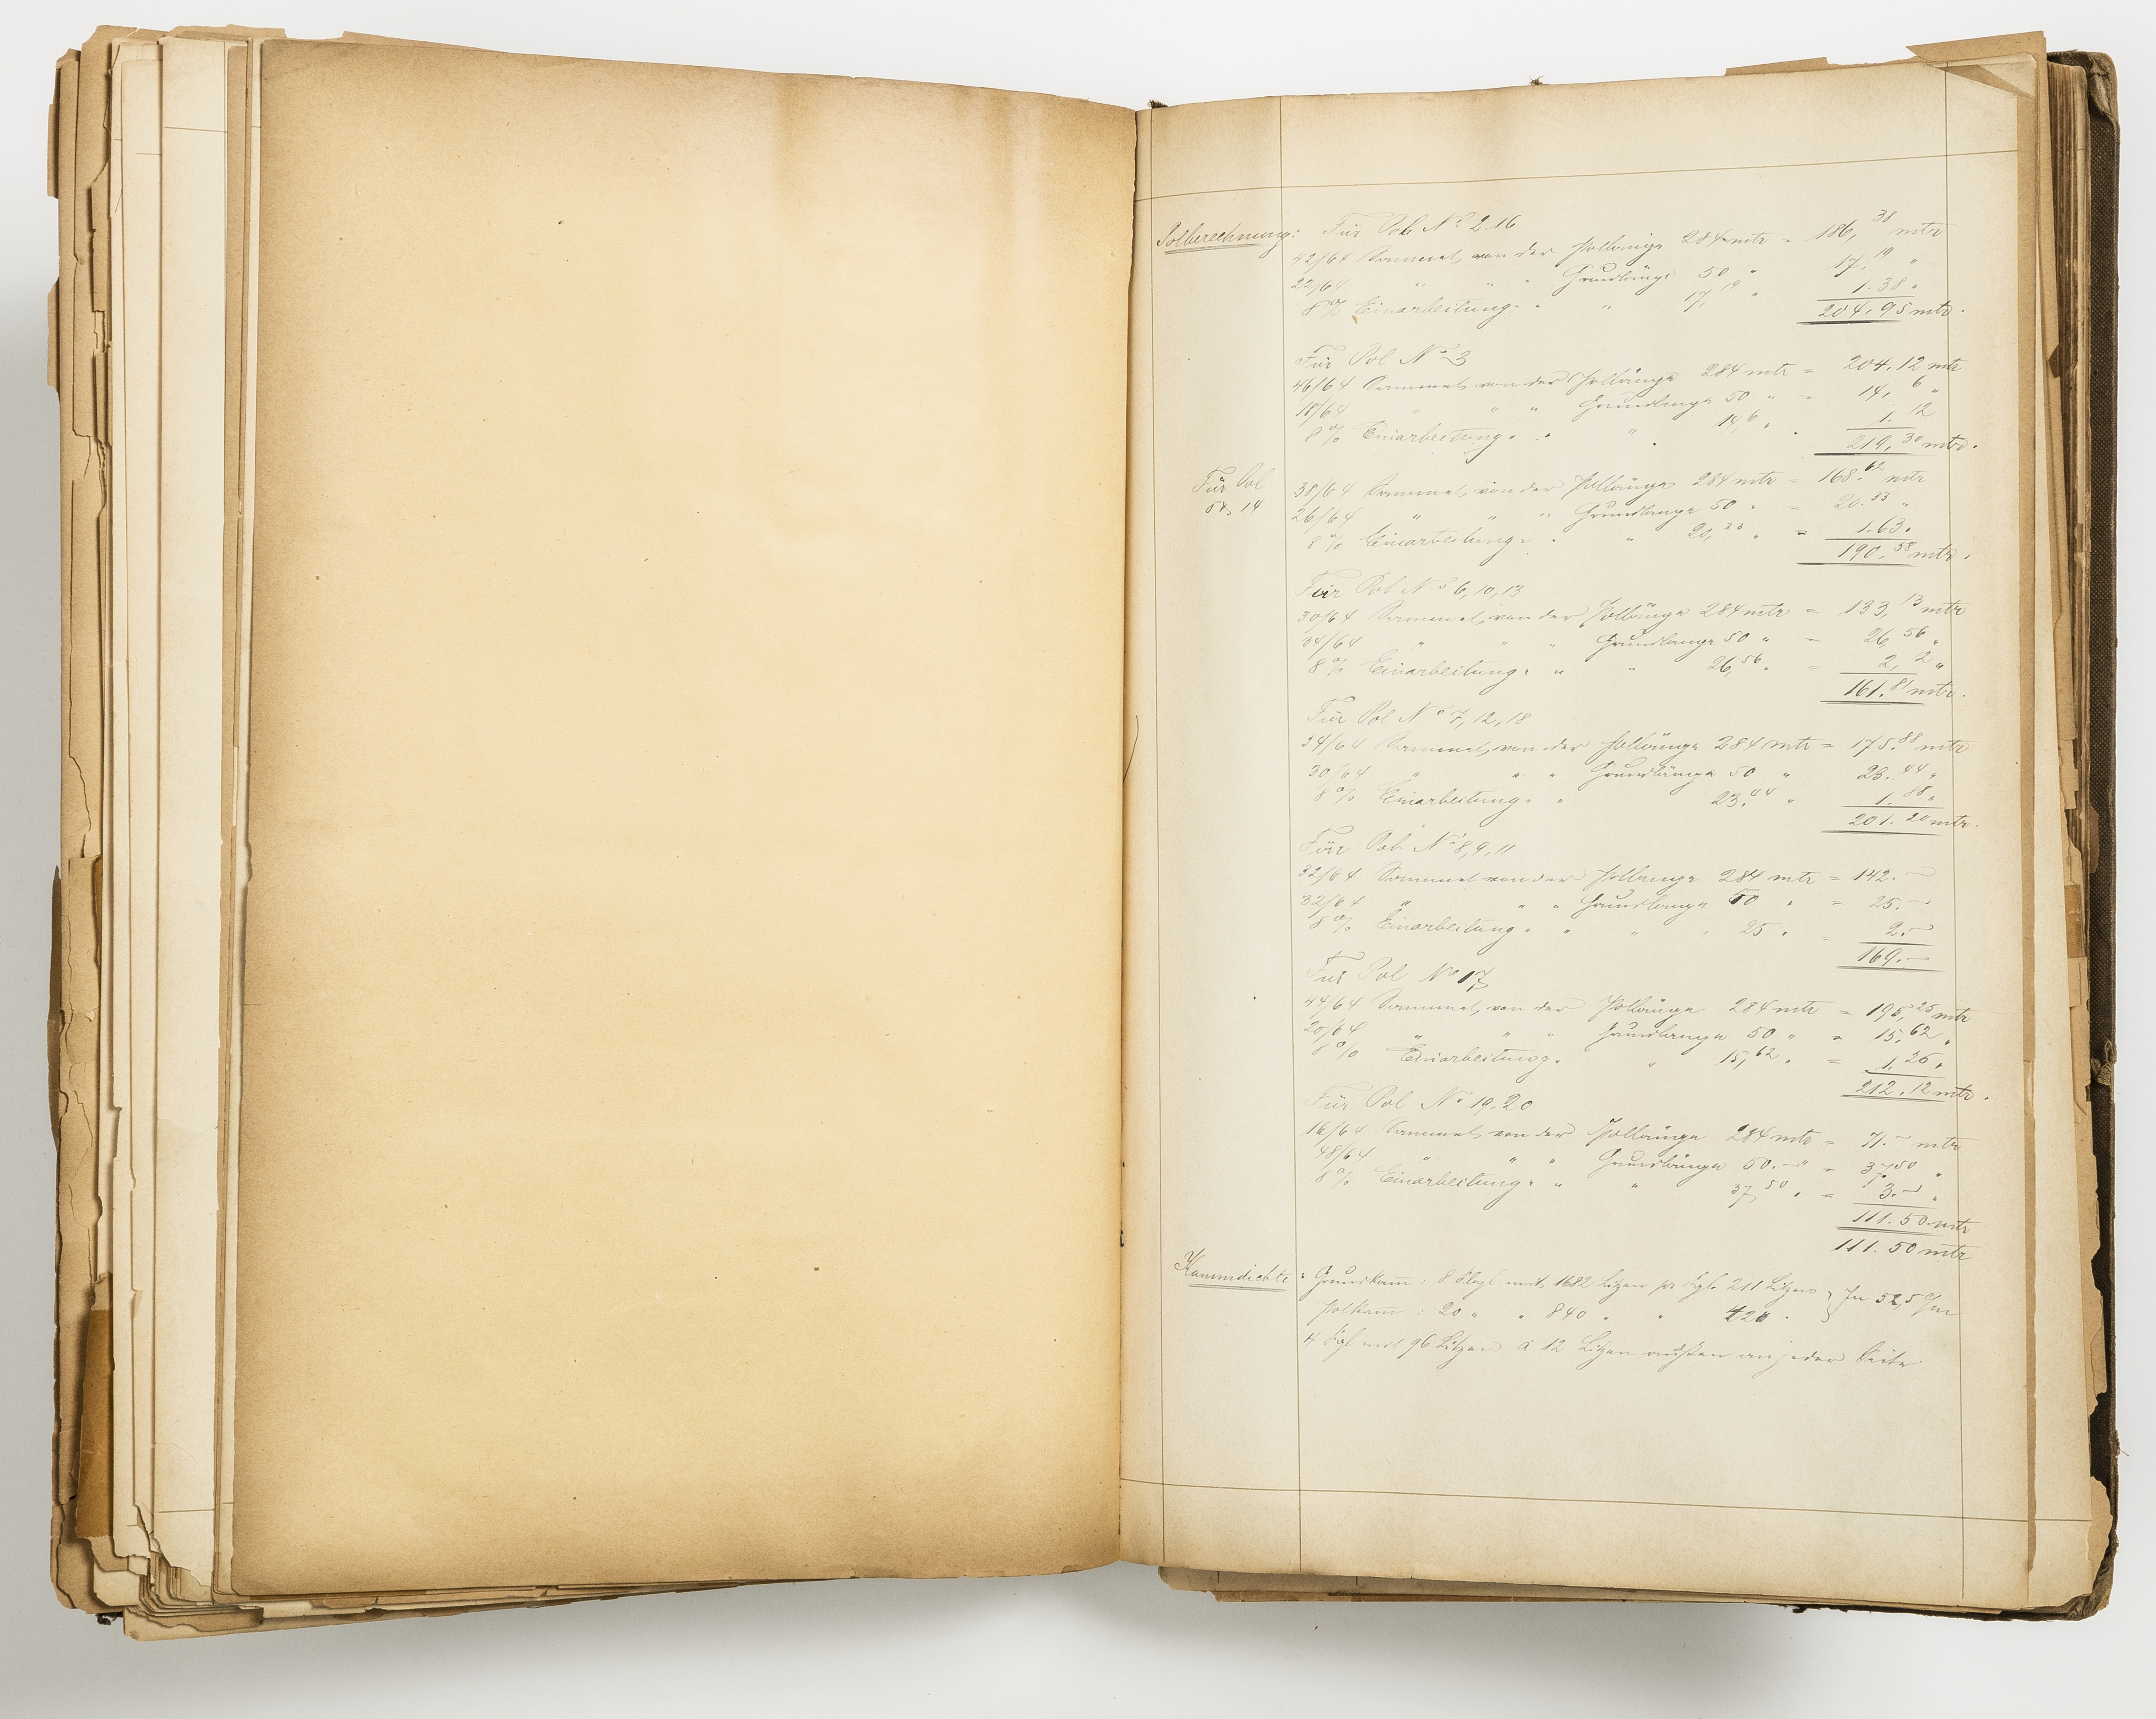 Polberechnung: Für Pol No 2.16
42/64 Sammet, von der Pollänge 284 mtr = 186,38 mtr
22/64 " " " Grundlänge 50 " 17,19 "
8 % Einarbeitung " " " 17,19 " 1.38 "
204.95 mtr.
Für Pol No 3
46/64 Sammet, von der Pollänge 284 mtr = 204.12 mtr
18/64 " " " Grundlänge 50 " = 14,6 "
8 % Einarbeitung " " " 14,6 " 1.12
219,30 mtr.
Für Pol
5, 14
38/64 Sammet, von der Pollänge 284 mtr = 168.62 mtr
26/64 " " " Grundlänge 50 " = 20.33 "
8 % Einarbeitung " " " 20,33 " = 1.63 "
190,58 mtr.
Für Pol No 6, 10, 13
30/64 Sammet, von der Pollänge 284 mtr = 133,13 mtr
34/64 " " " Grundlänge 50 " = 26,56 "
8 % Einarbeitung " " " 26,56 " = 2,12 "
161.81 mtr.
Für Pol No 7, 12, 18
34/64 Sammet, von der Pollänge 284 mtr = 175.88 mtr
30/64 " " " Grundlänge 50 " 23.44 "
8 % Einarbeitung " " 23.44 " 1.88 "
201.20 mtr.
Für Pol No 8, 9, 11
32/64 Sammet von der Pollänge 284 mtr = 142.—
32/64 " " " Grundlänge 50 " = 25.—
8 % Einarbeitung " " " 25 " = 2.—
169.—
Für Pol No 17
44/64 Sammet, von der Pollänge 284 mtr = 195,25 mtr
20/64 " " " Grundlänge 50 " = 15,62 "
8 % Einarbeitung " " 15,62 " = 1,25 "
212.12 mtr.
Für Pol No 19, 20
16/64 Sammet, von der Pollänge 284 mtr = 71.— mtr
48/64 " " " Grundlänge 50.— " = 37,50 "
8 % Einarbeitung " " " 37,50 " = 3.— "
111.50 mtr
111.50 mtr
Kammdichte: Grundkam: 8 Flgl mit 1682 Litzen pr Flgl 211 Litzen } In 52,5 c/m
Polkam: 20 " " 840 " " 420
4 Flgl mit 96 Litzen à 12 Litzen an jeder Seite.